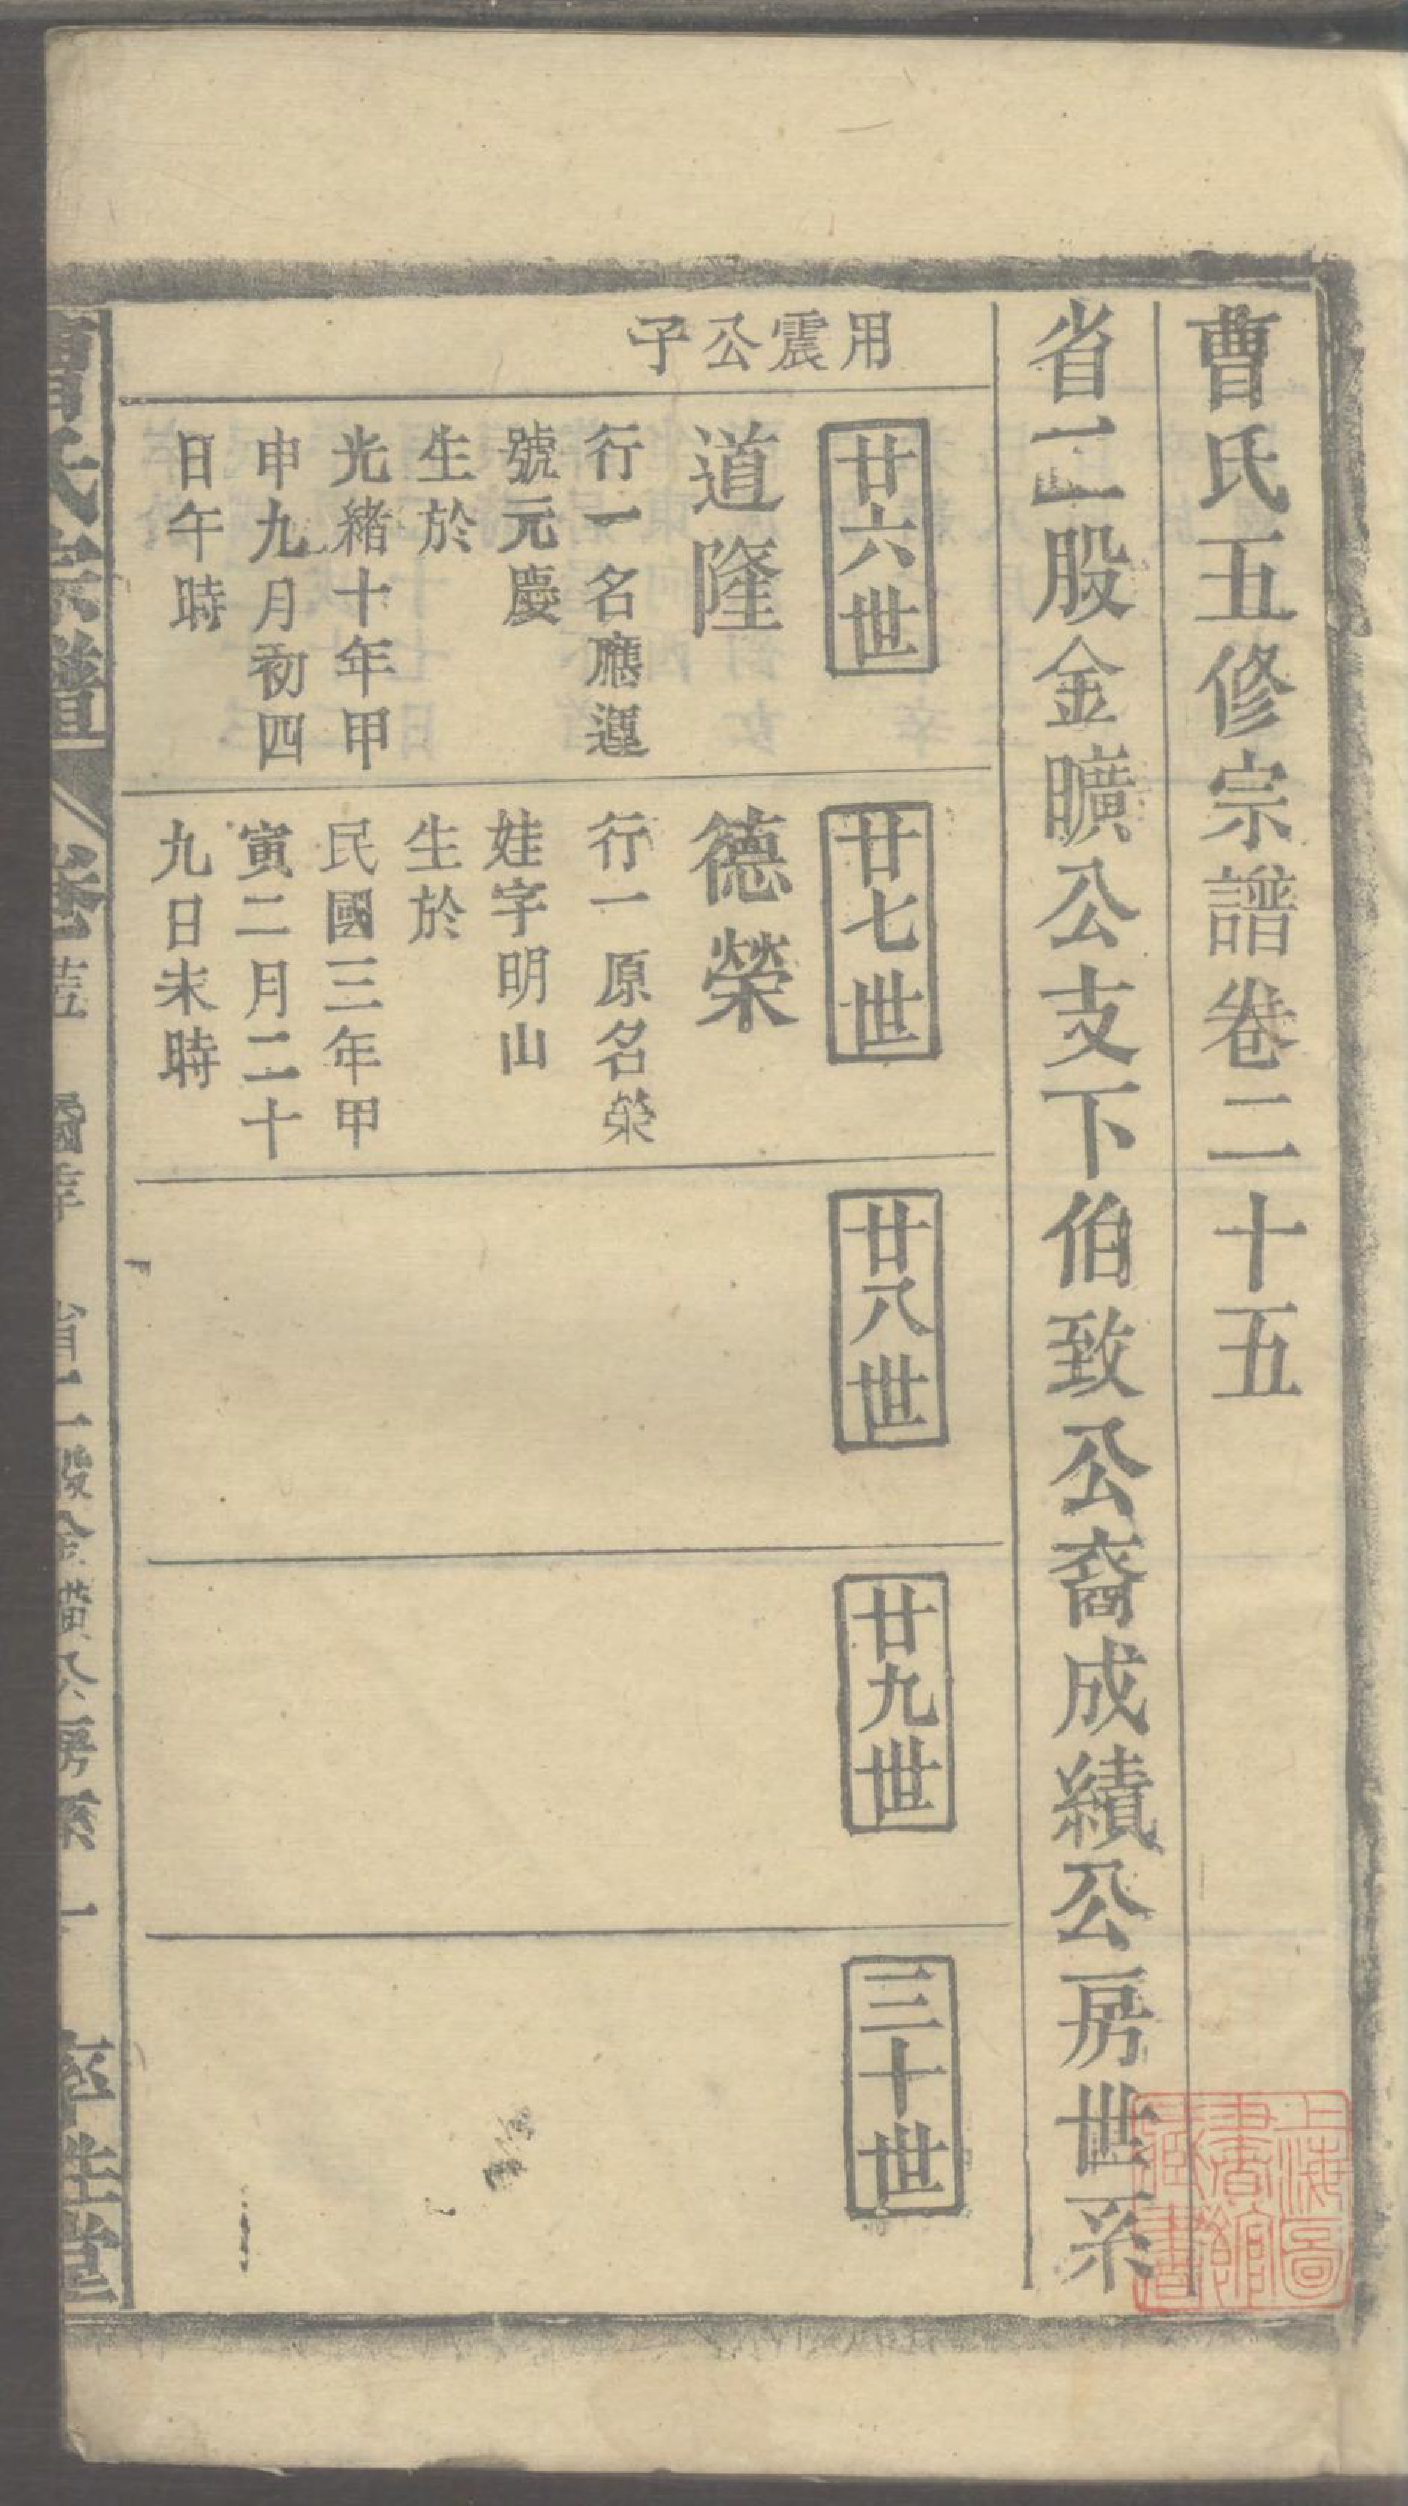 曹氏五修宗譜卷二十五
省二股金曠公支下伯致公裔成績公房世系
用震公子
廿六世
道隆
行一名應運
號元慶
生於
光緒十年甲
申九月初四
日午時
廿七世
德榮
行一原名榮
娃字明山
生於
民國三年甲
寅二月二十
九日未時
廿八世
廿九世
三十世
曹氏宗譜
省二股金曠公房系 一
上海圖
書館
藏書